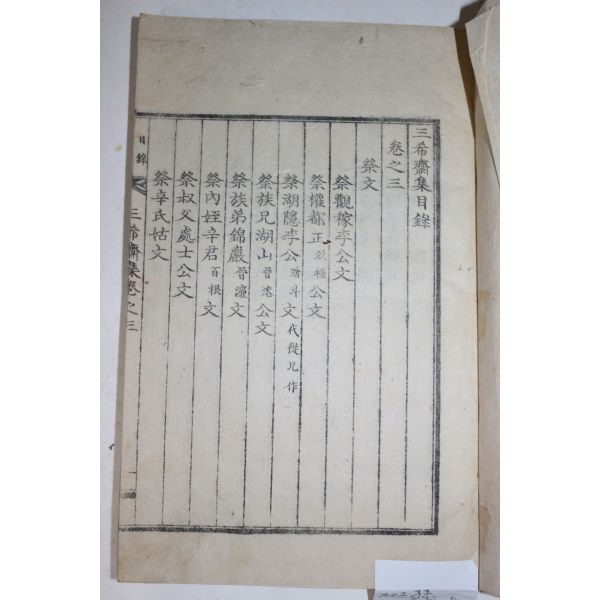 三希齋集目錄
卷之三
祭文
祭觀稼李公文
祭權都正公文
祭湖隱李公文代從兄作
祭族兄湖山晉公文
祭族弟錦巖晉濂文
祭內姪辛君百根文
祭叔父處士公文
祭辛氏姑文
目錄
三希齋集卷之三
一